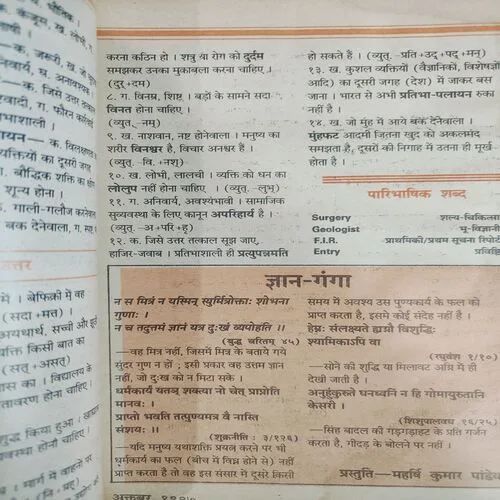 धौतिक ।
क. कंजूस, ख. लोभी, ग.
क. जरूरी, ख. जो
अनिवार्य, घ. अनावश्यक
क. जिसे उत्तर
वादी, ग. फौरन
भाशाली ।
यन — क. विलक्षणता
व्यक्तियों का दूसरी जगह
ग. बौद्धिक शक्ति का
शून्य होना ।
क. गाली-गलौज करनेवाला
बक देनेवाला, ग.
उत्तर
में । बेफिक्री में वह
(सदा + मत्त) ।
अयथार्थ, सच्ची और झूठी
व्यक्ति किसी बात का
(सत् + असत्)
पास का । विद्यालय के
वातावरण होना चाहिए ।
शुद्ध किया हुआ ।
व्यवस्था होनी चाहिए ।
मार्ग में वाहनों पर
(नि + प्रद्)
करना कठिन हो । शत्रु या रोग को दुर्दम
समझकर उनका मुकाबला करना चाहिए ।
(दुर् + दम)
८. ग. विनम्र, शिष्ट । बड़ों के सामने सदा
विनत होना चाहिए ।
(व्युत्. नम्)
९. ख. नाशवान, नष्ट होनेवाला । मनुष्य का
शरीर विनश्वर है, विचार अनश्वर हैं ।
(व्युत्. -वि. + नश्)
१०. ख. लोभी, लालची । व्यक्ति को धन का
लोलुप नहीं होना चाहिए । (व्युत्. -लुभ्)
११. ग. अनिवार्य, अवश्यंभावी । सामाजिक
सुव्यवस्था के लिए कानून अपरिहार्य है ।
(व्युत्. -अ + परि + हृ)
१२. क. जिसे उत्तर तत्काल सूझ जाए,
हाजिर-जवाब । प्रतिभाशाली ही प्रत्युत्पन्नमति
हो सकते हैं । (व्युत्. -प्रति + उद् + पद् + मनु)
१३. ख. कुशल व्यक्तियों (वैज्ञानिकों, विशेषज्ञों
आदि) का दूसरी जगह (देश) में जाकर बस
जाना । भारत से अभी प्रतिभा-पलायन रुका
नहीं है ।
१४. ख. जो मुंह में आये बके देनेवाला ।
मुंहफट आदमी जितना खुद को अकलमंद
समझता है, दूसरों की निगाह में उतना ही मूर्ख
होता है ।
पारिभाषिक शब्द
Surgery शल्य-चिकित्सा
Geologist भू-विज्ञानी
F.I.R. प्राथमिकी/प्रथम सूचना रिपोर्ट
Entry प्रविष्टि
ज्ञान-गंगा
न स मित्रं न यस्मिन् स्युर्मित्रोक्ताः शोभना
गुणाः ।
न च तदुत्तमं ज्ञानं यत्र दुःखं व्यपोहति ।।
(बुद्ध चरितम् ४५)
—वह मित्र नहीं, जिसमें मित्र के बताये गये
सुंदर गुण न हों ; इसी प्रकार वह उत्तम ज्ञान
नहीं, जो दुःख को न मिटा सके ।
धर्मकार्यं यतन् शक्त्या नो चेत् प्राप्नोति
मानवः ।
प्राप्तो भवति तत्पुण्यमत्र वै नास्ति
संशयः ।। (शुक्रनीति : ३/१२६)
—यदि मनुष्य यथाशक्ति प्रयत्न करने पर भी
धर्मकार्य का फल (बीच में विघ्न होने से) नहीं
प्राप्त करता है तो वह इस संसार में दूसरे किसी
समय में अवश्य उस पुण्यकार्य के फल को
प्राप्त करता है, इसमें कोई संदेह नहीं है ।
हेम्नः संलक्ष्यते ह्यग्नौ विशुद्धिः
श्यामिकाऽपि वा
(रघुवंश १/१०)
—सोने की शुद्धि या मिलावट अग्नि में ही
देखी जाती है ।
अनुहुंकुरुते घनध्वनिं न हि गोमायुरुतानि
केसरी ।
(शिशुपालवध १६/२५)
—सिंह बादल की गड़गड़ाहट के प्रति गर्जन
करता है, गीदड़ के बोलने पर नहीं ।
प्रस्तुति—महर्षि कुमार पांडेय
अक्तूबर